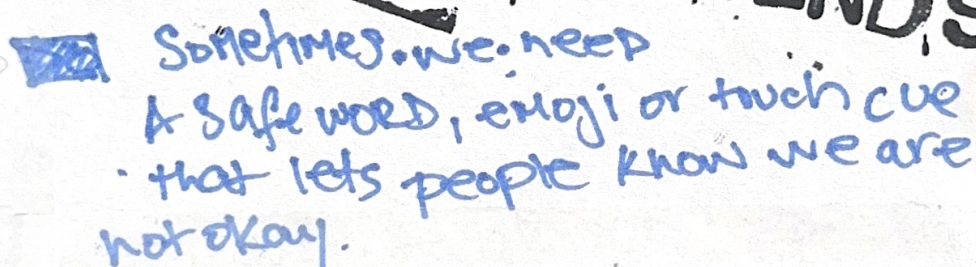 Sometimes we need
A safe word, emoji or touch cue
that lets people know we are
not okay.